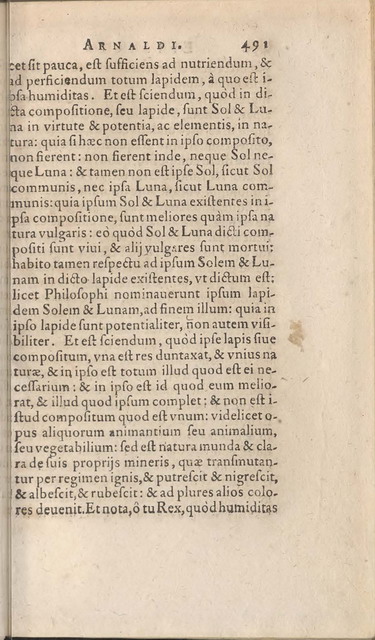 ARNALDI. 491
cet sit pauca, est sufficiens ad nutriendum, &
ad perficiendum totum lapidem, à quo est i-
psa humiditas. Et est sciendum, quòd in di-
cta compositione, seu lapide, sunt Sol & Lu-
na in virtute & potentia, ac elementis, in na-
tura: quia si hæc non essent in ipso composito,
non fierent: non fierent inde, neque Sol ne-
que Luna: & tamen non est ipse Sol, sicut Sol
communis, nec ipsa Luna, sicut Luna com-
munis: quia ipsum Sol & Luna existentes in i-
psa compositione, sunt meliores quàm ipsa na
tura vulgaris: eò quòd Sol & Luna dicti com-
positi sunt viui, & alij vulgares sunt mortui:
habito tamen respectu ad ipsum Solem & Lu-
nam in dicto lapide existentes, vt dictum est:
licet Philosophi nominauerunt ipsum lapi-
dem Solem & Lunam, ad finem illum: quia in
ipso lapide sunt potentialiter, non autem visi-
biliter. Et est sciendum, quòd ipse lapis siue
compositum, vna est res duntaxat, & vnius na
turæ, & in ipso est totum illud quod est ei ne-
cessarium: & in ipso est id quod eum melio-
rat, & illud quod ipsum complet: & non est i-
stud compositum quod est vnum: videlicet o-
pus aliquorum animantium seu animalium,
seu vegetabilium: sed est natura munda & cla-
ra de suis proprijs mineris, quæ transmutan-
tur per regimen ignis, & putrescit & nigrescit,
& albescit, & rubescit: & ad plures alios colo-
res deuenit. Et nota, ô tu Rex, quòd humiditas